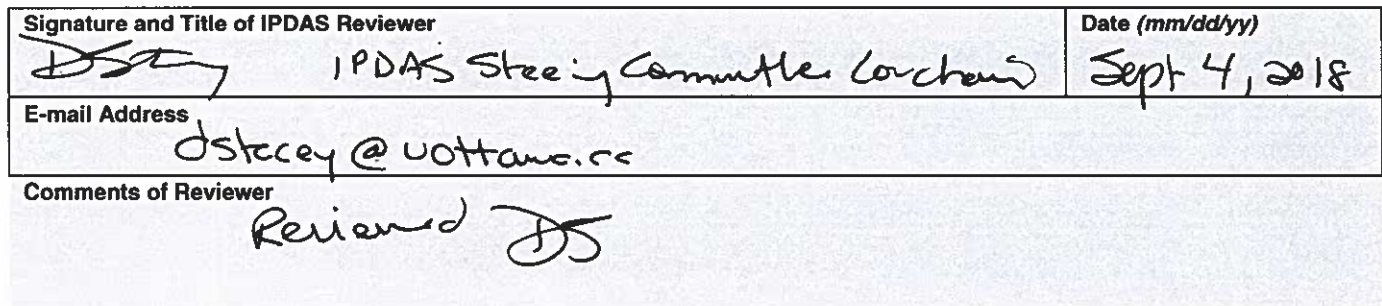 Signature and Title of IPDAS Reviewer
Date (mm/dd/yy)
DStacey IPDAS Steering Committee Co-chair
Sept 4, 2018
E-mail Address
dstacey@uottawa.ca
Comments of Reviewer
Reviewed DS